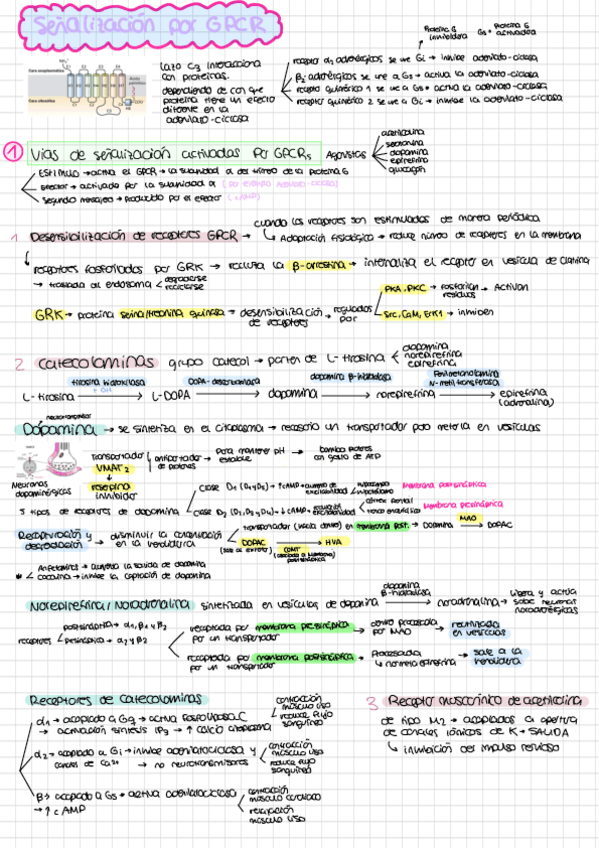 Señalización por GPCR
Proteína G inhibidora
Gs → Proteína G activadora
lazo C3 interacciona con proteínas.
dependiendo de con que proteína tiene un efecto diferente en la adenilato-ciclasa
receptor α2 adrenérgicos se une Gi → inhibe adenilato-ciclasa
β2 adrenérgicos se une a Gs → activa la adenilato-ciclasa
receptor
1 se une a Gs → activa la adenilato-ciclasa
receptor
2 se une a Gi → inhibe la adenilato-ciclasa
1 Vías de señalización activadas por GPCRs
Agonistas
serotonina
dopamina
epinefrina
glucagón
ESTÍMULO → activa el GPCR → la subunidad α del trímero de la proteína G
efector → activado por la subunidad α (por ejemplo adenilato-ciclasa)
segundo mensajero → producido por el efector (cAMP)
cuando los receptores son estimulados de manera periódica
1 Desensibilización de receptores GPCR → Adaptación fisiológica → reduce número de receptores en la membrana
receptores fosforilados por GRK → recluta la β-arrestina → internaliza el receptor en vesícula de clatrina
→ traslada al endosoma
degradarse
reciclarse
GRK → proteína serina/treonina quinasa → desensibilización de receptores → regulados por
PKA, PKC → fosforilan residuos → Activan
Src, CaM, ERK1 → inhiben
2 Catecolaminas grupo catecol → parten de L-tirosina
dopamina
norepinefrina
epinefrina
L-tirosina → tirosina hidroxilasa + OH → L-DOPA → DOPA-descarboxilasa → dopamina → dopamina β-hidroxilasa → norepinefrina → Feniletanolamina N-metil transferasa → epinefrina (adrenalina)
neurotransmisor
Dopamina → se sintetiza en el citoplasma → necesario un transportador para meterla en vesículas
Neuronas dopaminérgicas
transportador VMAT2
reserpina inhibidor
antiportador de protones → para mantener pH estable → bombea protones con gasto de ATP
5 tipos de receptores de dopamina
clase D1 (D1 y D5) → ↑cAMP → aumento de excitabilidad
hipocampo
hipotálamo
Membrana postsináptica
clase D2 (D2, D3, D4) → ↓cAMP →
excitabilidad
córtex frontal
Membrana presináptica
Recaptación y degradación → disminuir la concentración en la hendidura
transportador (hacia dentro) en membrana post. → Dopamina → MAO → DOPAC
DOPAC → COMT → HVA
Anfetaminas → aumenta la salida de dopamina
* cocaína → inhibe la captación de dopamina
Norepinefrina/Noradrenalina sintetizada en vesículas de dopamina → dopamina β-hidroxilasa → noradrenalina → libera y actúa sobre neuronas noradrenérgicas
receptores
postsináptica → α1, β1 y β2
presináptica → α2 y β2
recaptada por membrana presináptica por un transportador → dentro procesada por MAO → reutilizada en vesículas
recaptada por membrana postsináptica por un transportador → Procesada → normetanefrina → sale a la hendidura
Receptores de catecolaminas
α1 → acoplado a Gq → activa fosfolipasa C → activación síntesis IP3 → ↑ calcio citoplasma
contracción músculo liso
reduce flujo sanguíneo
α2 → acoplado a Gi → inhibe adenilatociclasa y canales de Ca2+ → no neurotransmisores
contracción músculo liso
reduce flujo sanguíneo
β → acoplado a Gs → activa adenilatociclasa → ↑cAMP
contracción músculo cardíaco
relajación músculo liso
3 Receptor muscarínico de acetilcolina
de tipo M2 → acoplados a apertura de canales iónicos de K → SALIDA
inhibición del impulso nervioso